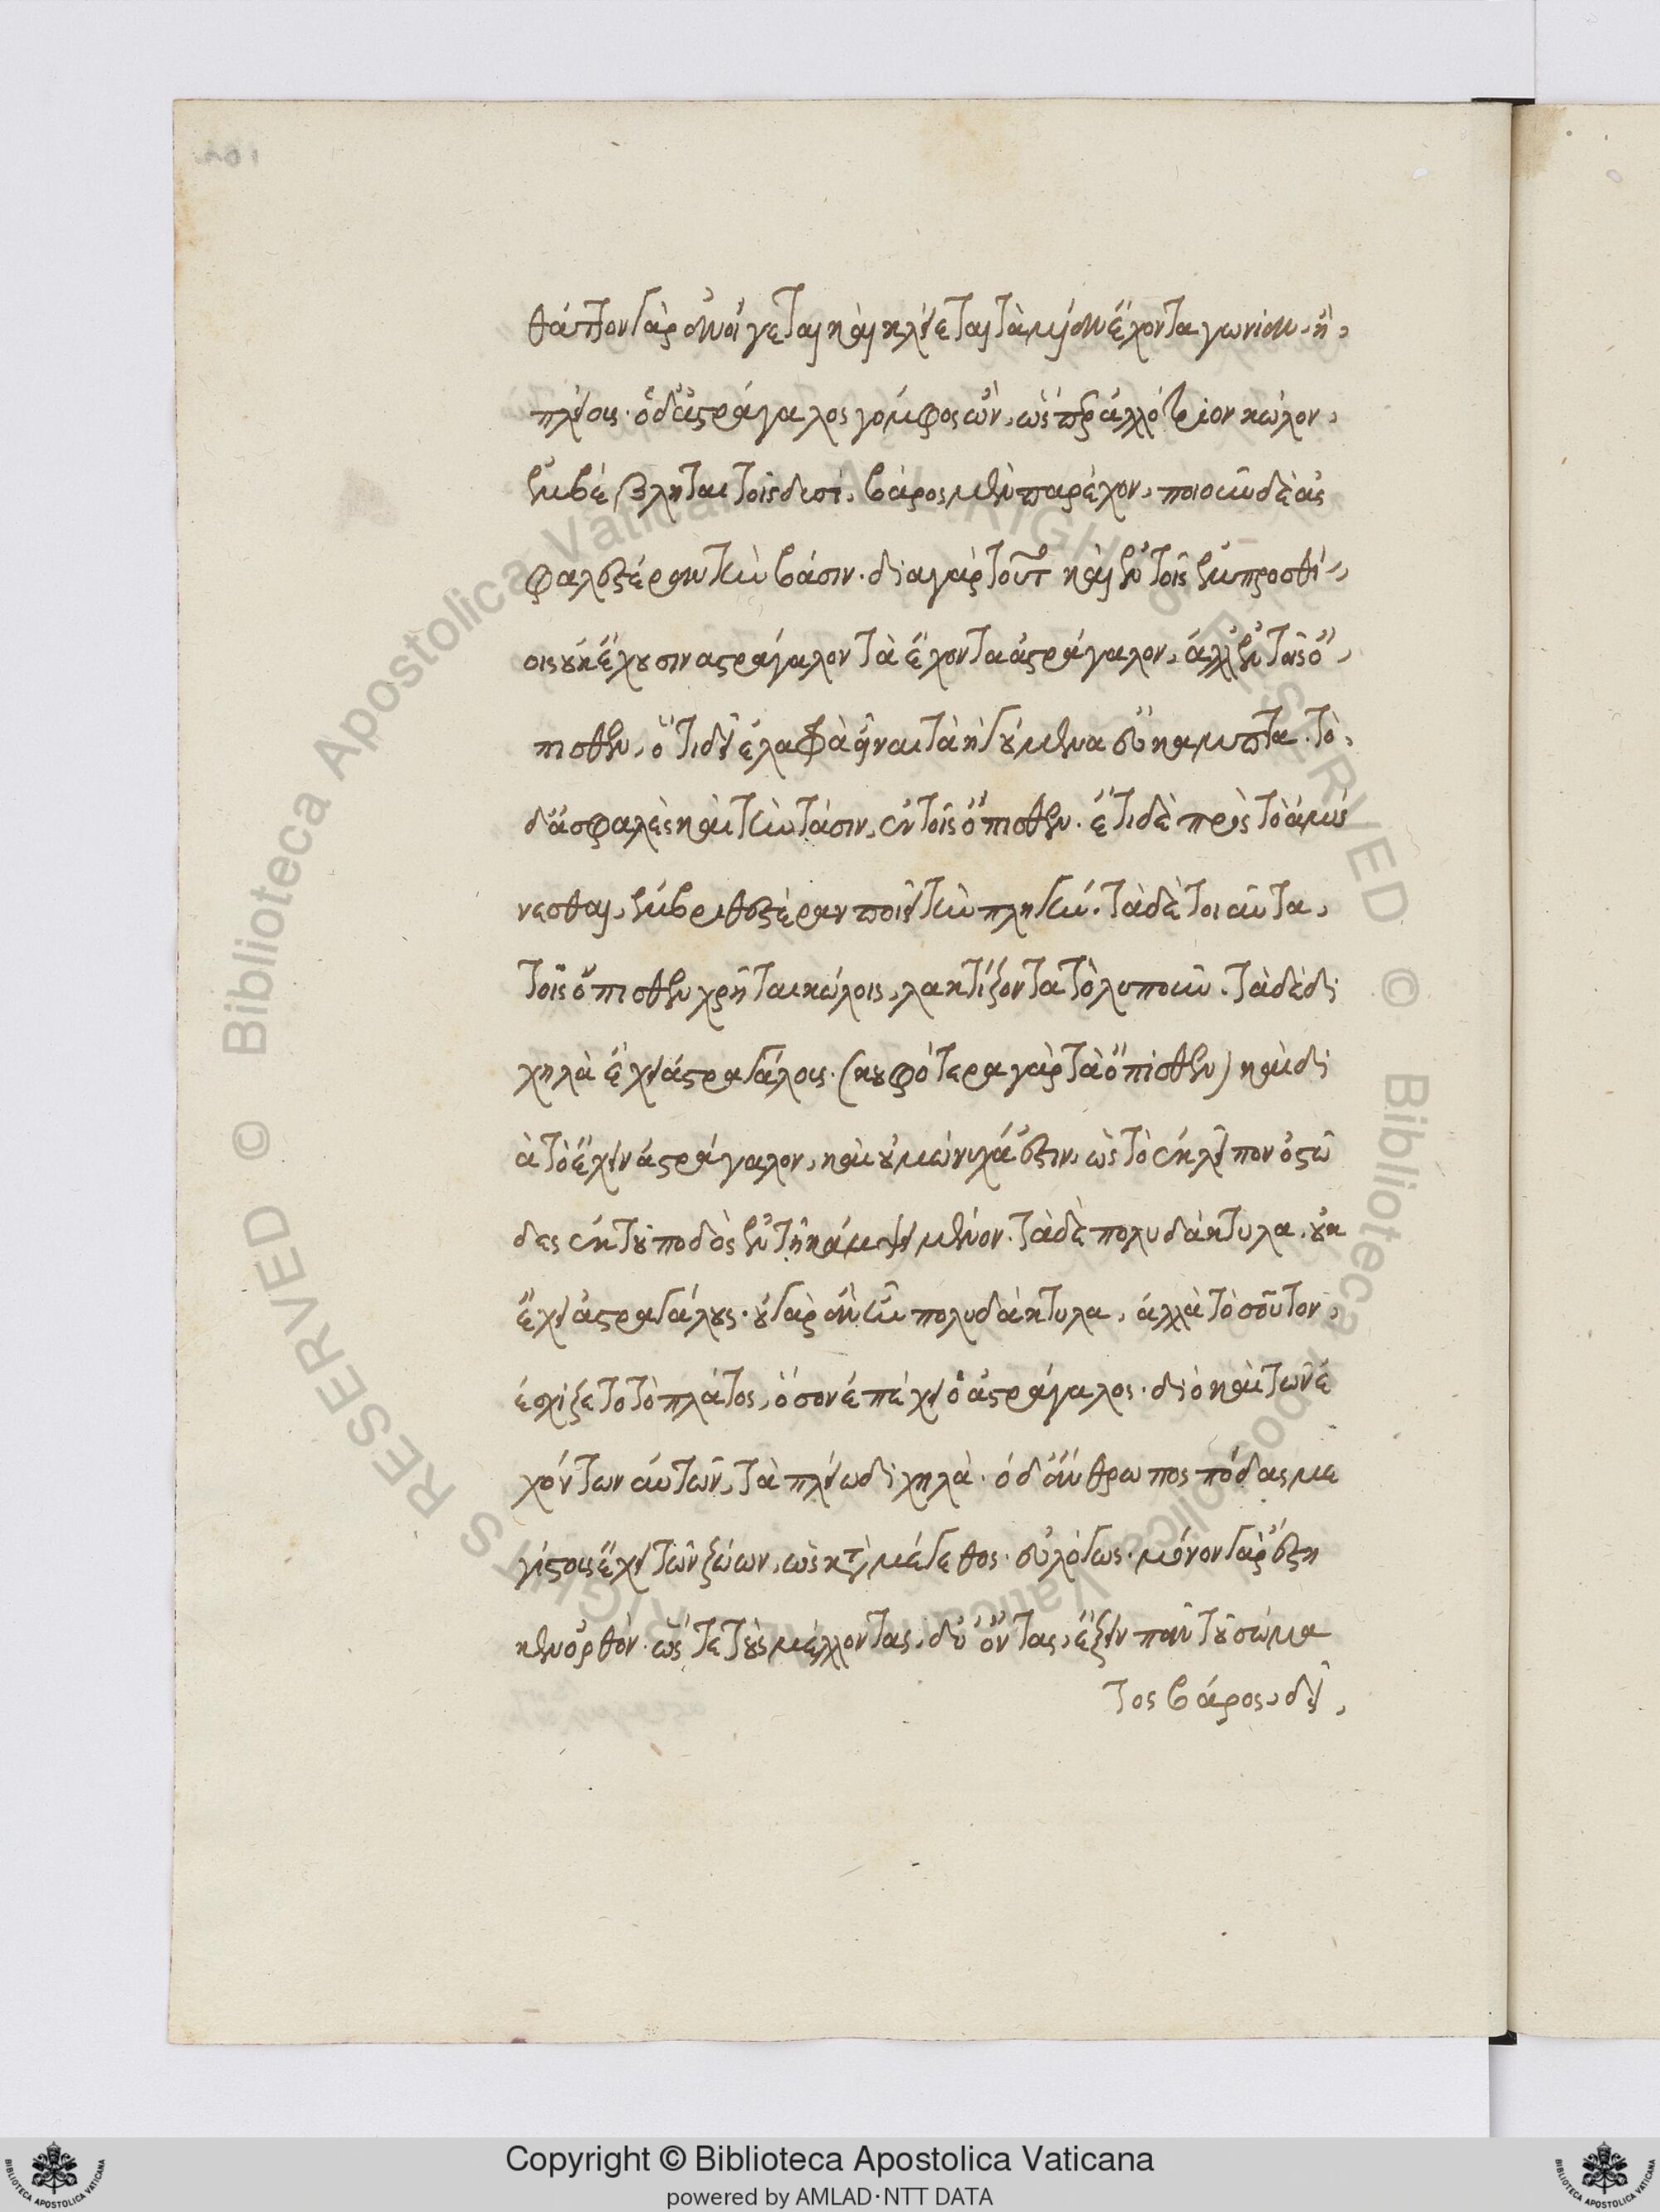 θάττον γὰρ ἀνοίγεται καὶ κλείεται τὰ μὴ ἀνέχοντα γωνίαν, ἢ,
πλείους. ὁ δ' ἀστράγαλος γόμφος ὢν, ὥσπερ ἀλλότριον κῶλον,
ἐμβέβληται τοῖς δυσί, βάρος μὲν παρέχον, ποιοῦν δὲ ἀσ
φαλεστέραν τὴν βάσιν. διαγὰρ τοῦτο καὶ ἐν τοῖς ἐμπροσθί-
οις οὐκ ἔχουσιν αστράγαλον τὰ ἔχοντα ἀστράγαλον, ἀλλ' ἐν τοῖς ὄ-
πισθεν, ὅτι δεῖ ἐλαφρὰ εἶναι τὰ ἡγούμενα καὶ εὔκαμπτα. τὸ,
δ' ἀσφαλὲς καὶ τὴν τάσιν, ἐν τοῖς ὄπισθεν. ἔτι δὲ πρὸς τὸ ἀμύ
νεσθαι, ἐμβριθεστέραν ποιεῖ τὴν πληγήν. τὰ δὲ τοιαῦτα,
τοῖς ὄπισθεν χρῆται κώλοις, λακτίζοντα τὸ λυποῦν. τὰ δὲ δι
χηλὰ ἔχει ἀστραγάλους. (κουφότερα γὰρ τὰ ὄπισθεν) καὶ δι
ὰ τὸ ἔχειν ἀστράγαλον, καὶ οὐ μώνυχά ἐστιν, ὡς τὸ ἐκλεῖπον ὀστῶ
δες ἐκ τοῦ ποδὸς ἐν τῇ κάμψει μένον. τὰ δὲ πολυδάκτυλα, οὐκ
ἔχει ἀστραγάλους. οὐ γὰρ ἂν ἦν πολυδάκτυλα, ἀλλὰ τὸσοῦτον,
ἐσχίζετο τὸ πλάτος, ὅσον ἐπέχει ὁ ἀστράγαλος. διὸ καὶ τῶν ἐ
χόντων αὐτῶν, τὰ πλείω διχηλὰ. ὁ δ' ἄνθρωπος πόδας με
γίστους ἔχει τῶν ζώων, ὡς κατὰ μέγεθος. εὐλόγως. μόνον γὰρ ἕστη
κεν ὀρθόν. ὥστε τοὺς μέλλοντας, δύ' ὄντας, ἕξειν πᾶν τοῦ σώμα
τος βάρος, δεῖ,
Copyright © Biblioteca Apostolica Vaticana
powered by AMLAD·NTT DATA